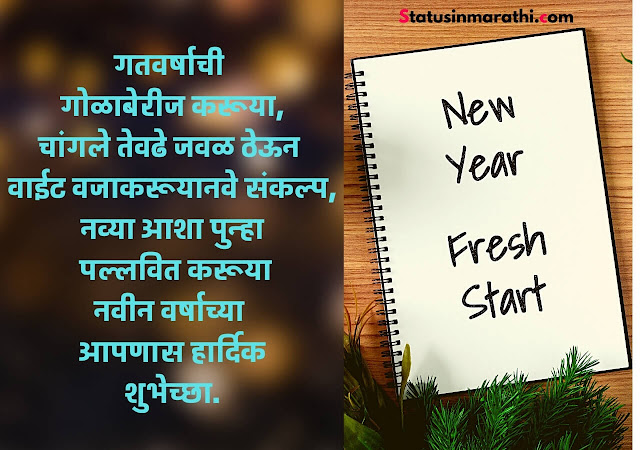 Statusinmarathi.com
गतवर्षाची
गोळाबेरीज करूया,
चांगले तेवढे जवळ ठेऊन
वाईट वजाकरूयानवे संकल्प,
नव्या आशा पुन्हा
पल्लवित करूया
नवीन वर्षाच्या
आपणास हार्दिक
शुभेच्छा.
New
Year
Fresh
Start